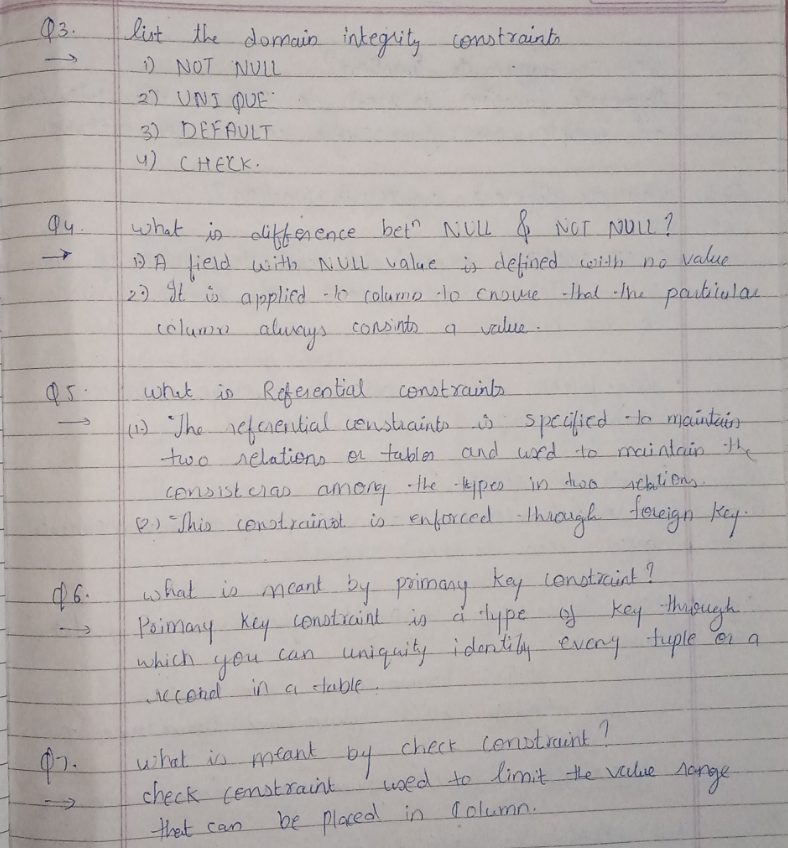 Q3. list the domain integrity constraints
→ 1) NOT NULL
2) UNIQUE
3) DEFAULT
4) CHECK.
Q4. What is difference betn NULL & NOT NULL?
→ 1) A field with NULL value is defined with no value
2) It is applied to column to ensure that the particular
column always consints a value.
Q5. What is Referential constraints
→ (1) The referential constraints is specified to maintain
two relations or tables and used to maintain the
among the types in two relations.
(2) This constrainst is enforced through foreign key.
Q6. What is meant by primary key constraint?
→ Primary key constraint is a type of key through
which you can uniquity identify every tuple or a
record in a table.
Q7. What is meant by check constraint?
→ check constraint used to limit the value range
that can be placed in column.